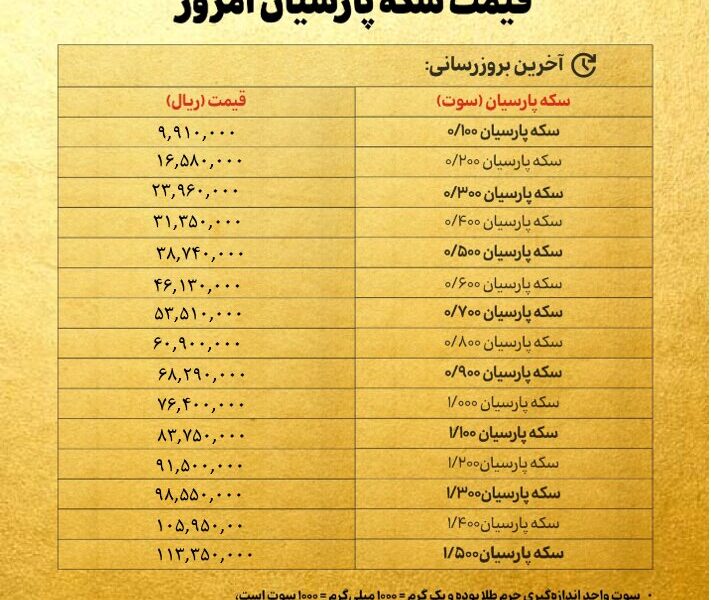 قیمت سکه پارسیان امروز
آخرین بروزرسانی:
سکه پارسیان (سوت) قیمت (ریال)
سکه پارسیان ۰/۱۰۰ ۹,۹۱۰,۰۰۰
سکه پارسیان ۰/۲۰۰ ۱۶,۵۸۰,۰۰۰
سکه پارسیان ۰/۳۰۰ ۲۳,۹۶۰,۰۰۰
سکه پارسیان ۰/۴۰۰ ۳۱,۳۵۰,۰۰۰
سکه پارسیان ۰/۵۰۰ ۳۸,۷۴۰,۰۰۰
سکه پارسیان ۰/۶۰۰ ۴۶,۱۳۰,۰۰۰
سکه پارسیان ۰/۷۰۰ ۵۳,۵۱۰,۰۰۰
سکه پارسیان ۰/۸۰۰ ۶۰,۹۰۰,۰۰۰
سکه پارسیان ۰/۹۰۰ ۶۸,۲۹۰,۰۰۰
سکه پارسیان ۱/۰۰۰ ۷۶,۴۰۰,۰۰۰
سکه پارسیان ۱/۱۰۰ ۸۳,۷۵۰,۰۰۰
سکه پارسیان۱/۲۰۰ ۹۱,۵۰۰,۰۰۰
سکه پارسیان۱/۳۰۰ ۹۸,۵۵۰,۰۰۰
سکه پارسیان۱/۴۰۰ ۱۰۵,۹۵۰,۰۰
سکه پارسیان۱/۵۰۰ ۱۱۳,۳۵۰,۰۰۰
• سوت واحد اندازه‌گیری جرم طلا بوده و یک گرم = ۱۰۰۰ میلی‌گرم = ۱۰۰۰ سوت است.